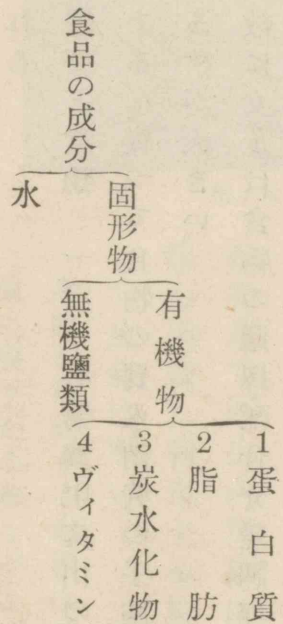 食品の成分
固形物
水
有機物
無機鹽類
1 蛋白質
2 脂肪
3 炭水化物
4 ヴィタミン